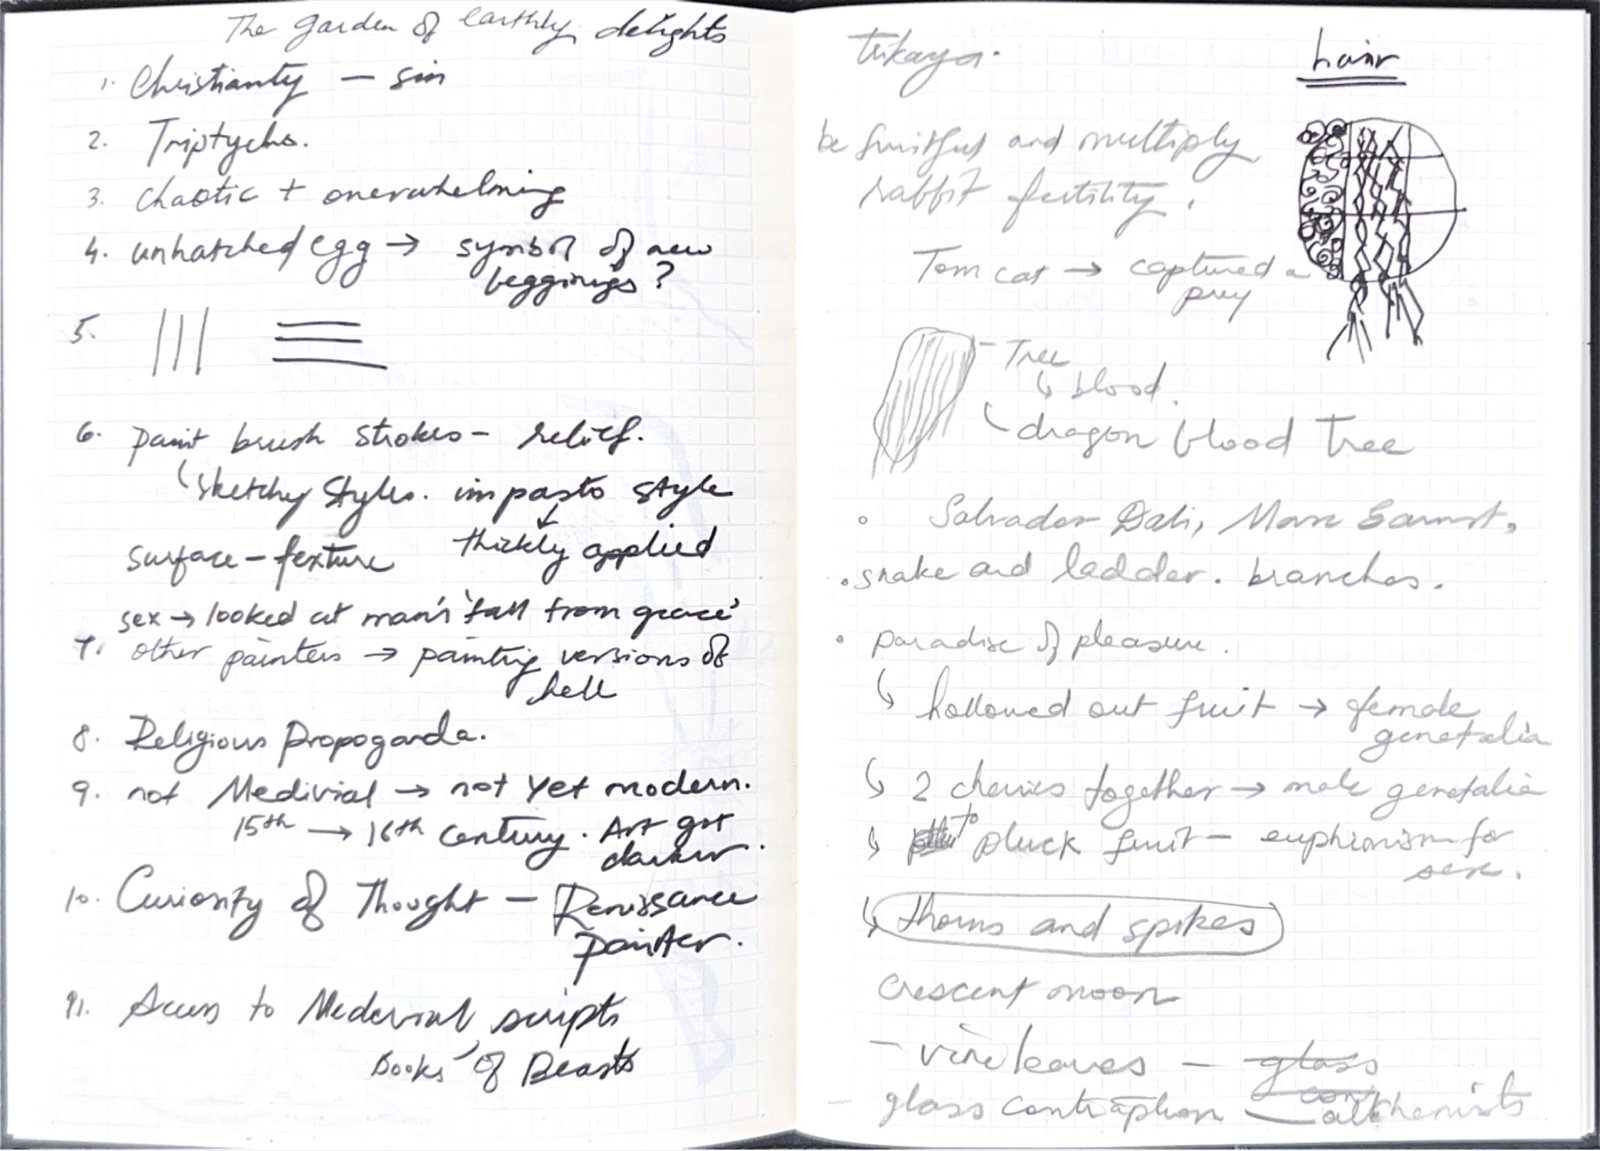 The Garden of Earthly delights
1. Christianty — sin
2. Triptychs.
3. Chaotic + onerwhelming
4. unhatched egg → symbol of new
beggnings ?
5.
6. paint brush strokes - relief.
sketchy styles. impasto style
thickly applied
surface - texture
sex → looked at man's 'fall from grace'
7. other painters → painting versions of
hell
8. Religious Propoganda.
9. not Medivial → not yet modern.
15th → 16th century. Art got
darker.
10. Curiosity of Thought — Renissance
painter.
11. Access to Medevial scripts
Books of Beasts
trikaya.
hair
be fruitful and multiply
rabbit fertility.
Tom cat → captured a
prey
- Tree
↳ blood.
dragon blood Tree
Salvador Dali,
. snake and ladder. branches.
• paradise of pleasure.
↳ hollowed out fruit → female
genetalia
↳ 2 cherries together → male genetalia
↳ to pluck fruit — euphimism for
sex.
↳ thorns and spikes
crescent moon
- vine leaves — glass
- glass contraption alchemists